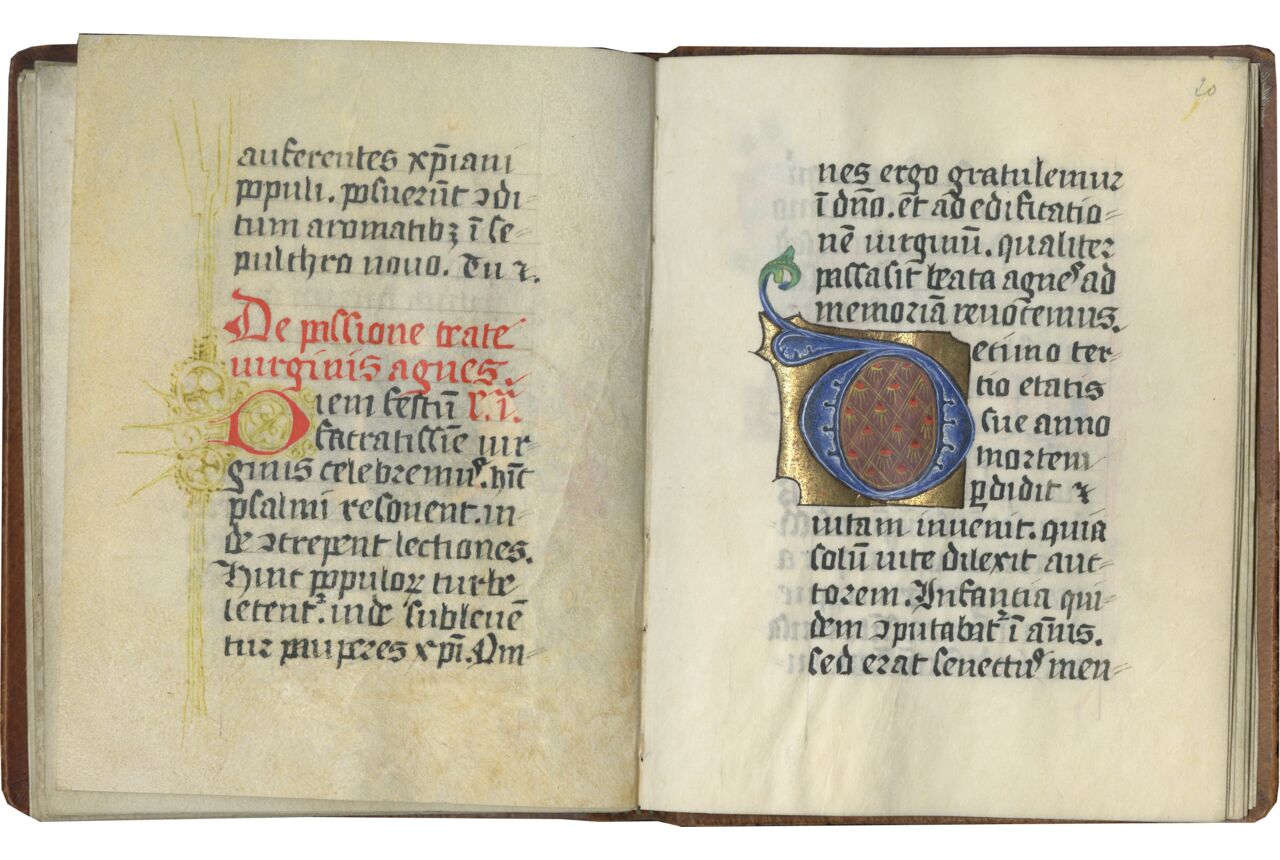 auferentes xp̄iani
populi. posuerūt ꝯdi-
tum aromatibꝫ ī se-
pulchro nouo. Tu ⁊.
De passione beate
uirginis agnes.
Diem festū l. ī.
sacratissīe uir-
ginis celebremꝰ. hīc
psalmi resonent. in-
de ꝯcrepent lectiones.
Hinc populoꝝ turbe
letent᷑. inde subleuē
tur pauperes xp̄i. Om-
20
nes ergo gratulemur
ī dn̄o. et ad edificatio-
nē uirginū. qualiter
passa sit beata agnes ad
memoriā reuocemus.
Decimo ter-
tio etatis
sue anno
mortem
ꝑdidit ⁊
uitam inuenit. quia
solū uite dilexit auc-
torem. Infantia qui-
dem ꝯputabat᷑ ī ānis.
sed erat senectꝰ men-